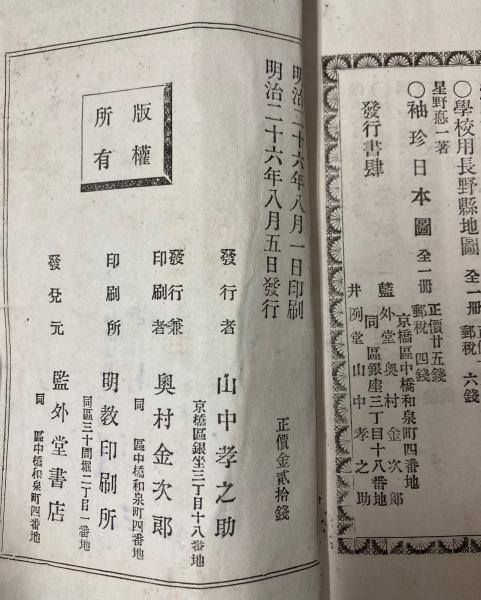 ○學校用長野縣地圖 全一冊 郵税 六錢
星野慤一著
○袖珍日本圖 全一冊 正價廿五錢 郵税四錢
發行書肆
京橋區中橋和泉町四番地
藍外堂 奥村金次郎
同區銀座三丁目十八番地
井冽堂 山中孝之助
明治二十六年八月一日印刷
明治二十六年八月五日發行
正價金貳拾錢
版權所有
京橋區銀座三丁目十八番地
發行者 山中孝之助
同 區中橋和泉町四番地
發行兼印刷者 奥村金次郎
同區三十間堀二丁目一番地
印刷所 明教印刷所
同 區中橋和泉町四番地
發兌元 監外堂書店